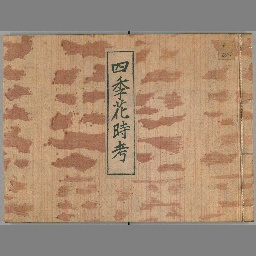 四季花時考